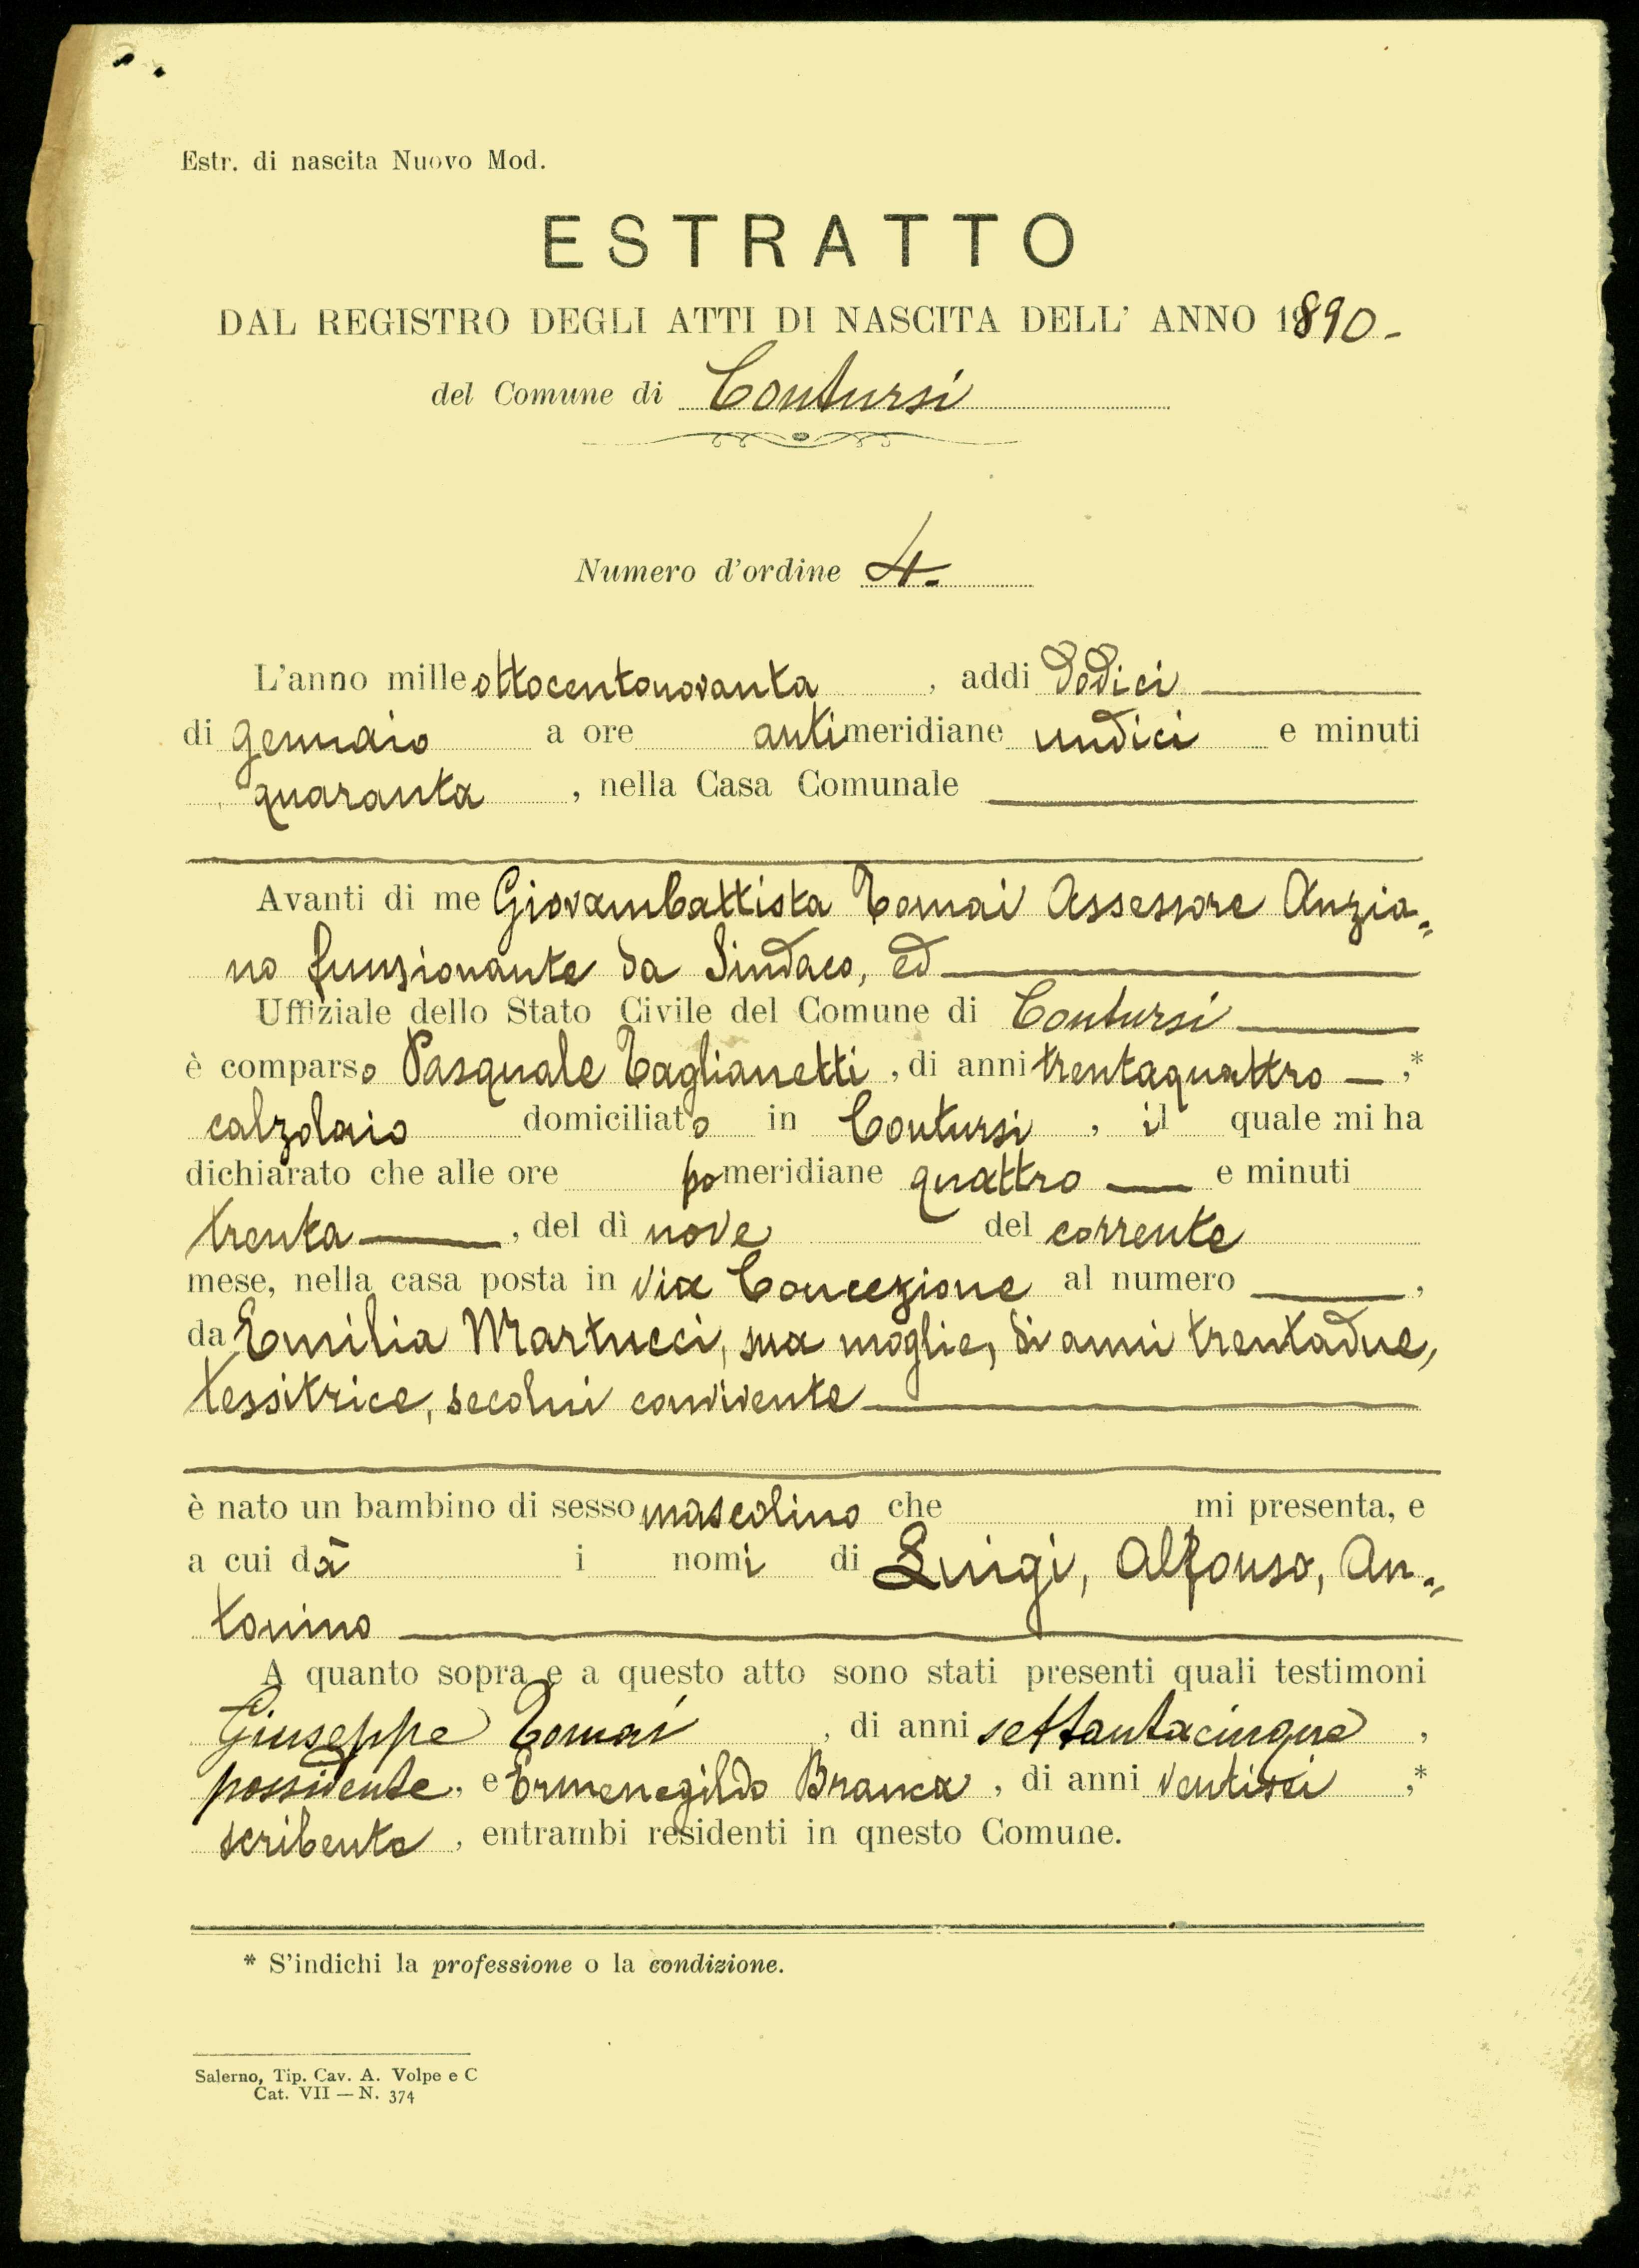 Estr. di nascita Nuovo Mod.
ESTRATTO
DAL REGISTRO DEGLI ATTI DI NASCITA DELL' ANNO 1890-
del Comune di Contursi
Numero d'ordine 4.
L'anno mille ottocentonovanta, addi Dodici
di gennaio a ore antimeridiane undici e minuti
quaranta, nella Casa Comunale
Avanti di me Giovambattista Tomai Assessore Anzia„
no funzionante da Sindaco, ed
Uffiziale dello Stato Civile del Comune di Contursi
è comparso Pasquale Taglianetti, di anni trentaquattro —,*
calzolaio domiciliato in Contursi, il quale mi ha
dichiarato che alle ore pomeridiane quattro — e minuti
trenta —, del dì nove del corrente
mese, nella casa posta in via Concezione al numero —,
da Emilia Martucci, sua moglie, di anni trentadue,
tessitrice, secolui convivente
è nato un bambino di sesso mascolino che mi presenta, e
a cui dà i nomi di Luigi, Alfonso, An„
tonino
A quanto sopra e a questo atto sono stati presenti quali testimoni
Giuseppe Tomai, di anni settantacinque,
possidente, e Ermenegildo Branca, di anni ventisei,*
scribente, entrambi residenti in qnesto Comune.
* S'indichi la professione o la condizione.
Salerno, Tip. Cav. A. Volpe e C
Cat. VII — N. 374